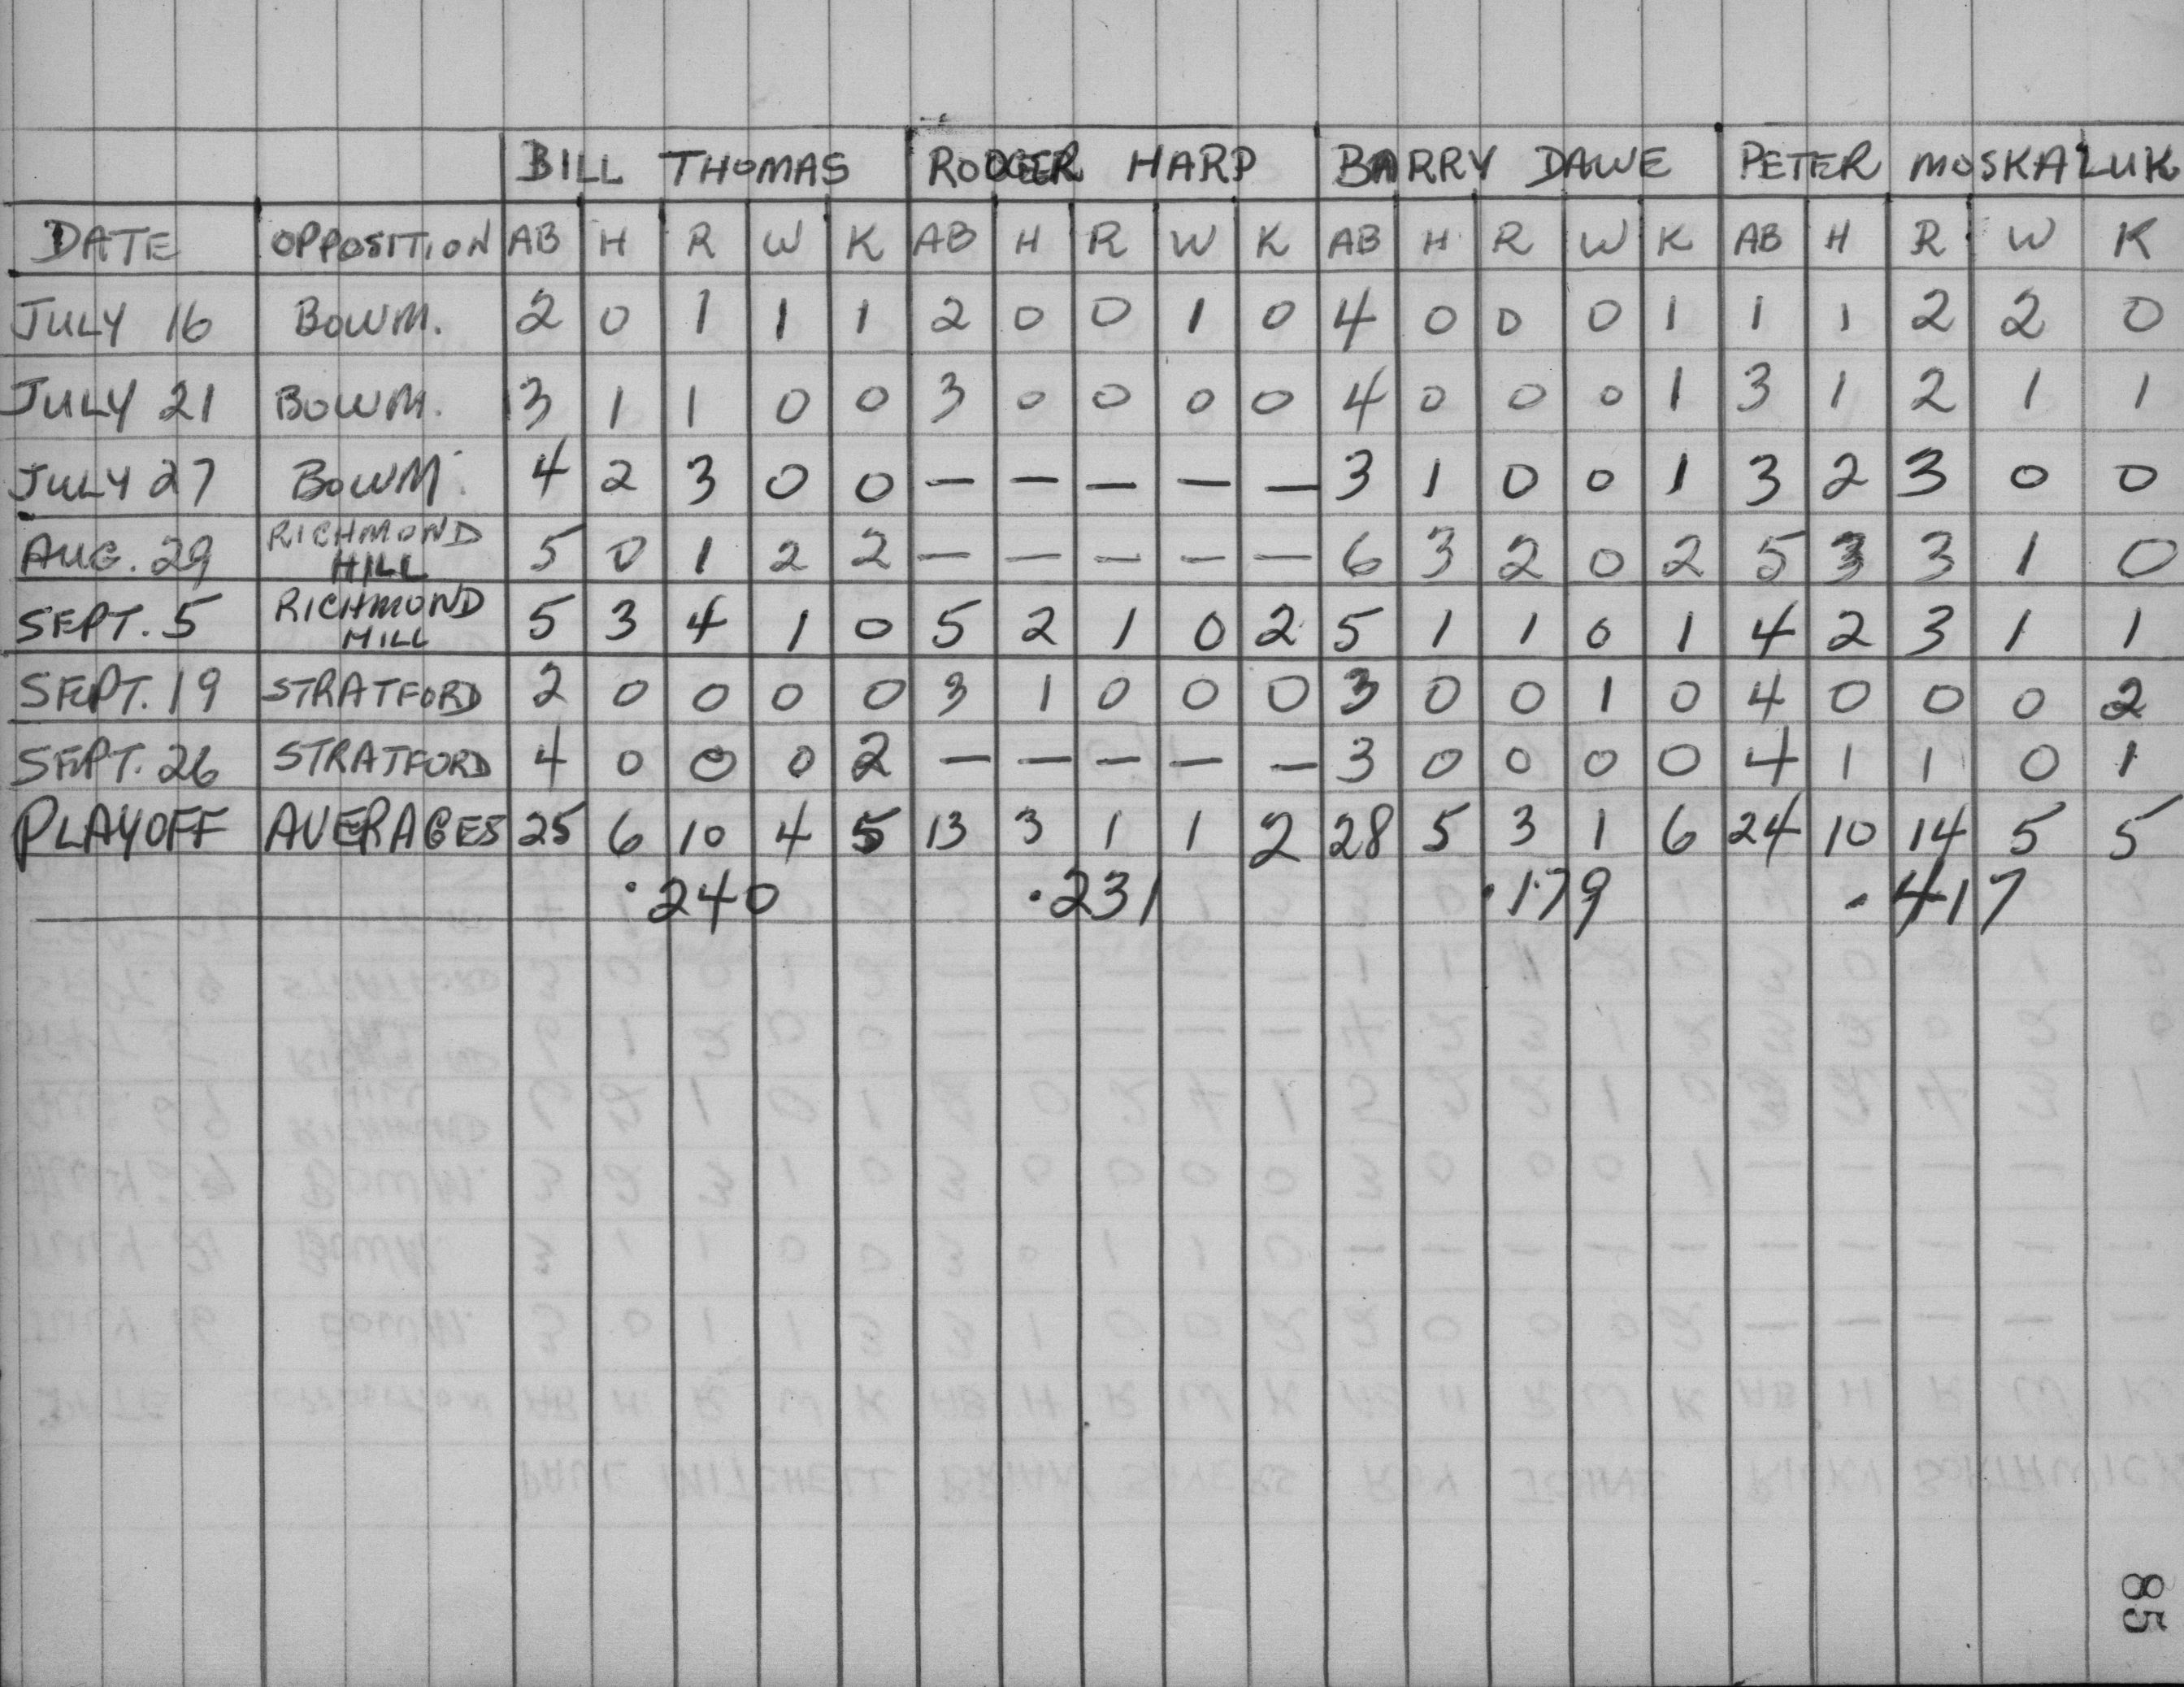 BILL THOMAS RODGER HARP BARRY DAWE PETER MOSKALUK
DATE OPPOSITION AB H R W K AB H R W K AB H R W K AB H R W K
JULY 16 BOWM. 2 0 1 1 1 2 0 0 1 0 4 0 0 0 1 1 1 2 2 0
JULY 21 BOWM. 3 1 1 0 0 3 0 0 0 0 4 0 0 0 1 3 1 2 1 1
JULY 27 BOWM. 4 2 3 0 0 — — — — — 3 1 0 0 1 3 2 3 0 0
AUG. 29 RICHMOND HILL 5 0 1 2 2 — — — — — 6 3 2 0 2 5 3 3 1 0
SEPT. 5 RICHMOND HILL 5 3 4 1 0 5 2 1 0 2 5 1 1 0 1 4 2 3 1 1
SEPT. 19 STRATFORD 2 0 0 0 0 3 1 0 0 0 3 0 0 1 0 4 0 0 0 2
SEPT. 26 STRATFORD 4 0 0 0 2 — — — — — 3 0 0 0 0 4 1 1 0 1
PLAYOFF AVERAGES 25 6 10 4 5 13 3 1 1 2 28 5 3 1 6 24 10 14 5 5
.240 .231 .179 .417
85